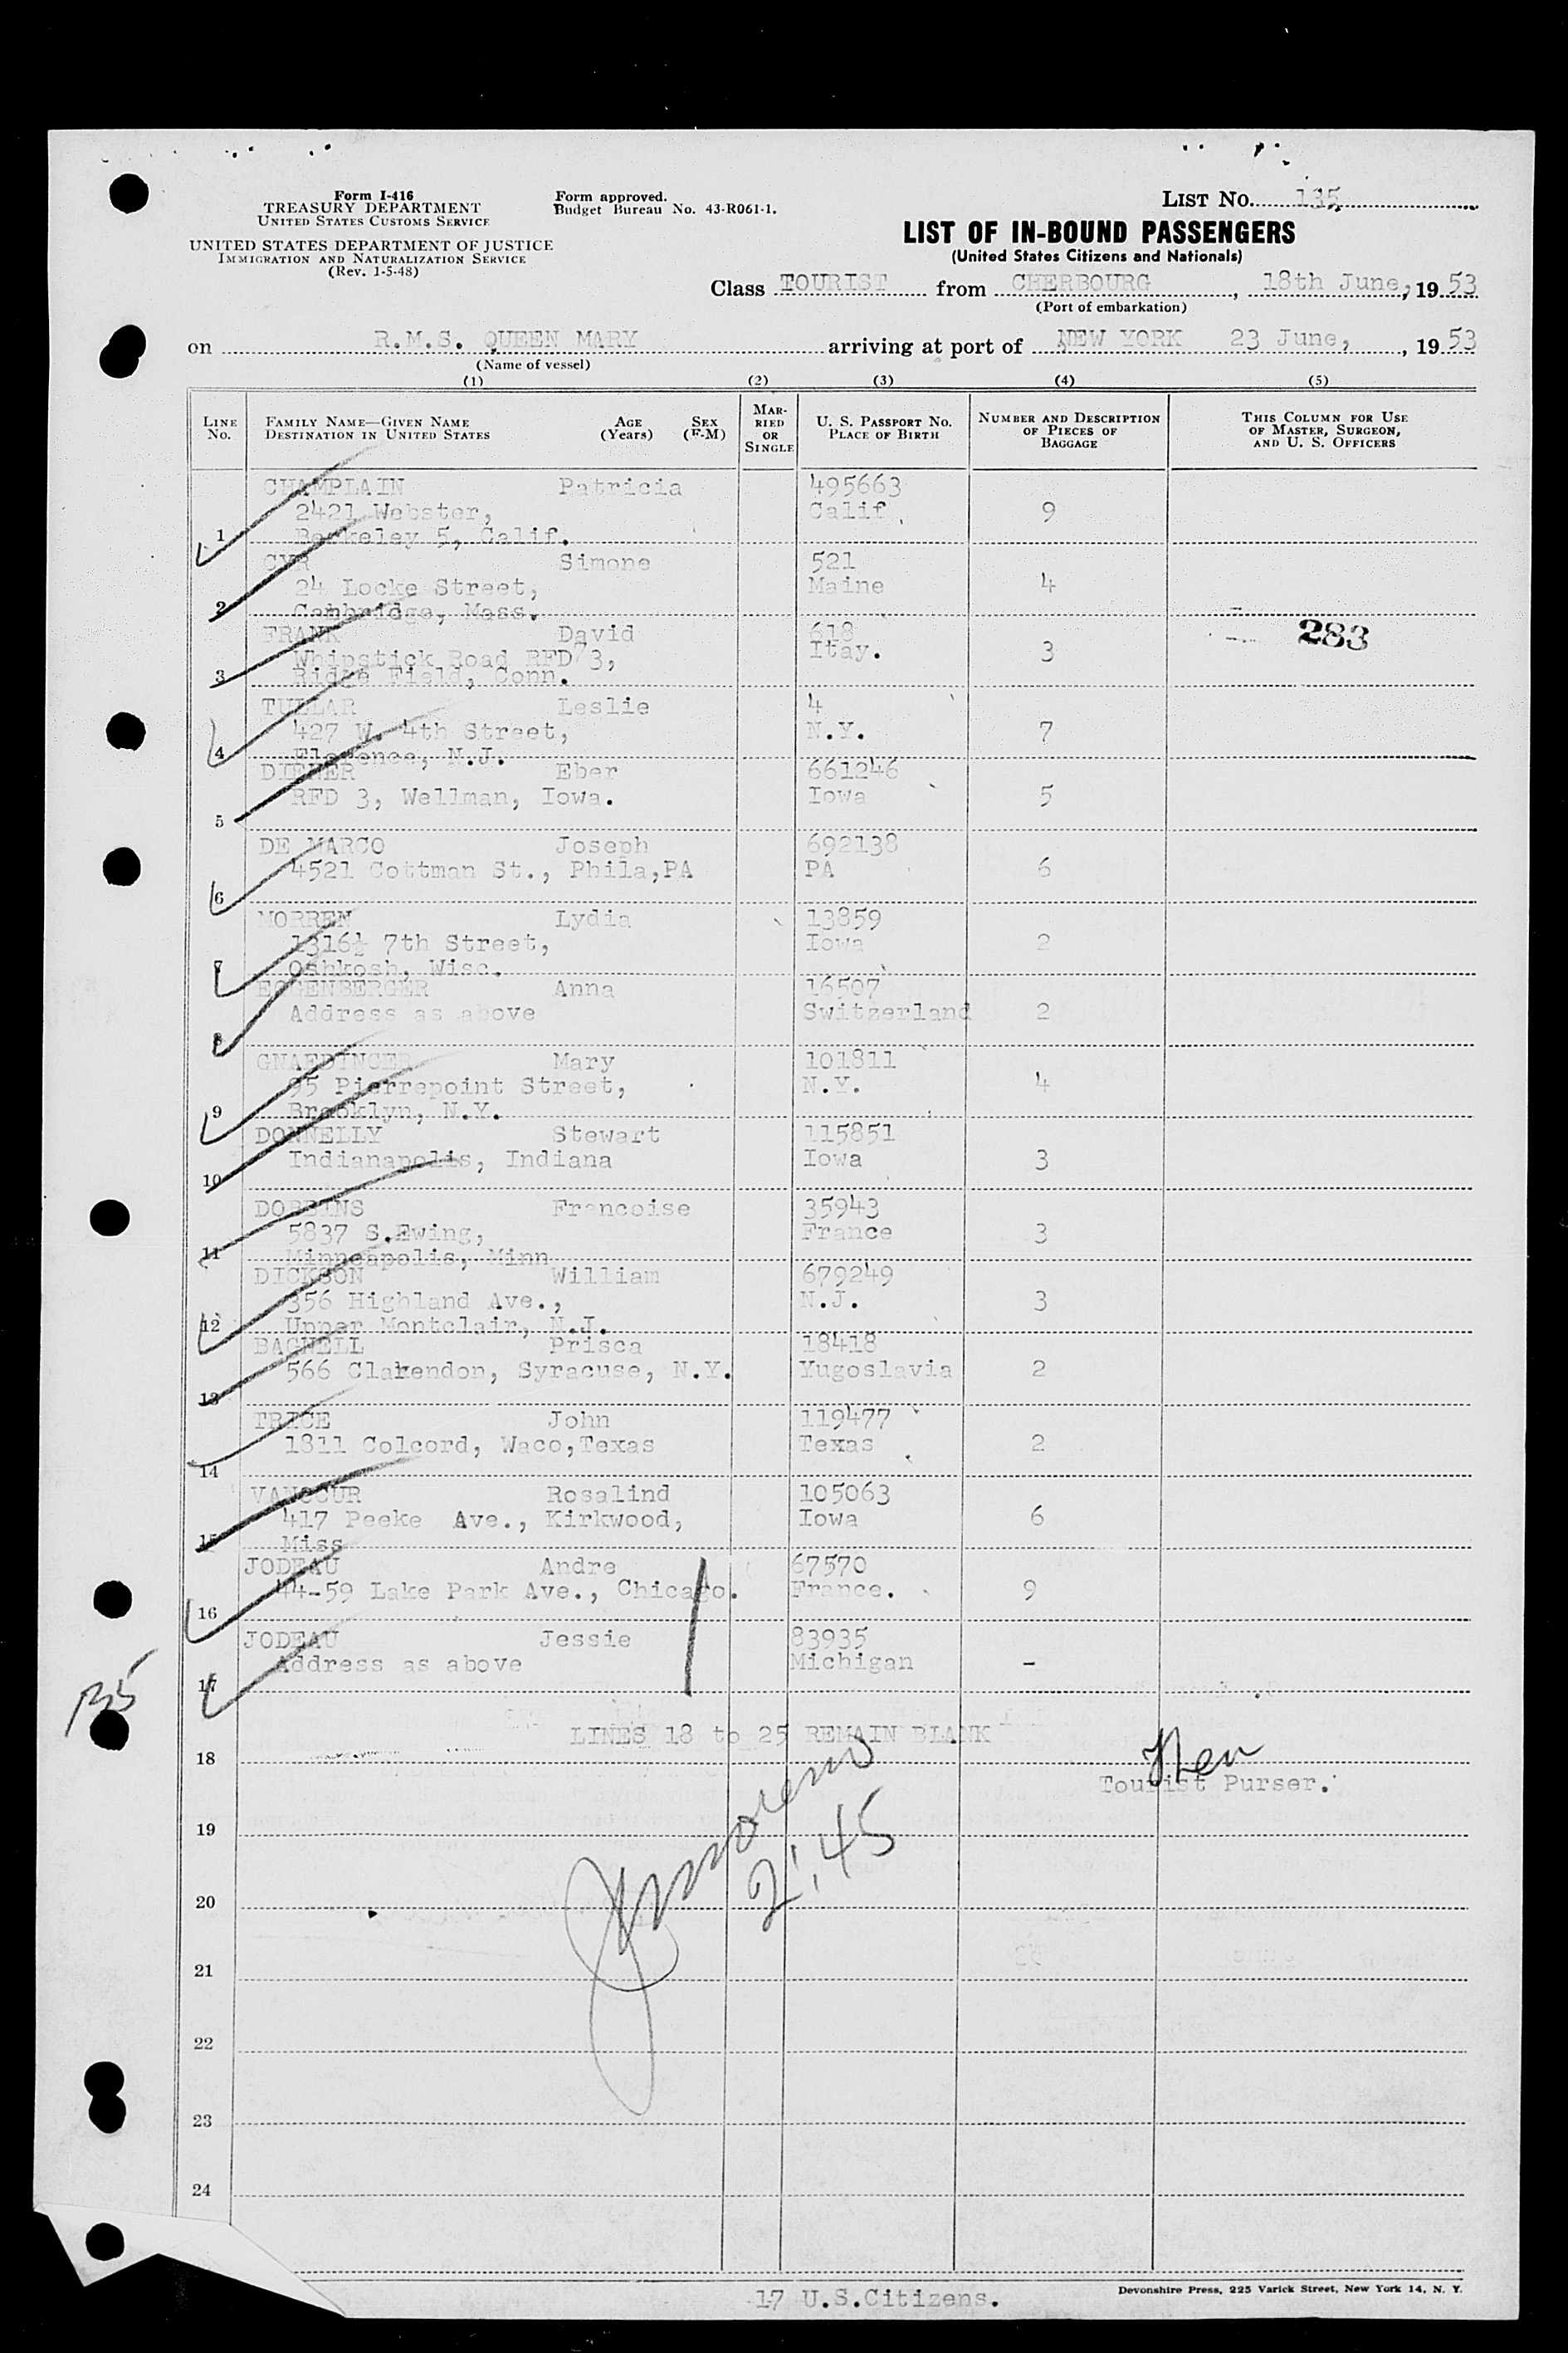 Form I-416
TREASURY DEPARTMENT
UNITED STATES CUSTOMS SERVICE
UNITED STATES DEPARTMENT OF JUSTICE
IMMIGRATION AND NATURALIZATION SERVICE
(Rev. 1-5-48)
Form approved.
Budget Bureau No. 43-R061-1.
LIST NO. 135
LIST OF IN-BOUND PASSENGERS
(United States Citizens and Nationals)
Class TOURIST from CHERBOURG, 18th June, 1953
(Port of embarkation)
on R.M.S. QUEEN MARY arriving at port of NEW YORK 23 June, , 1953
(Name of vessel)
(1) (2) (3) (4) (5)
LINE No. FAMILY NAME—GIVEN NAME DESTINATION IN UNITED STATES AGE (Years) SEX (F-M) MARRIED OR SINGLE U. S. PASSPORT NO. PLACE OF BIRTH NUMBER AND DESCRIPTION OF PIECES OF BAGGAGE THIS COLUMN FOR USE OF MASTER, SURGEON, AND U. S. OFFICERS
CHAMPLAIN Patricia 495663
2421 Webster, Calif. 9
1 Berkeley 5, Calif.
CYR Simone 521
24 Locke Street, Maine 4
2 Cambridge, Mass.
FRANK David 618 283
Whipstick Road RFD 3, Itay. 3
3 Ridge Field, Conn.
Leslie 4
427 W. 4th Street, N.Y. 7
4 Florence, N.J.
DIENER Eber 661246
RFD 3, Wellman, Iowa. Iowa 5
5
DE MARCO Joseph 692138
4521 Cottman St., Phila,PA PA 6
6
MORREN Lydia 13859
1316½ 7th Street, Iowa 2
7 Oshkosh, Wisc.
EGGENBERGER Anna 16507
Address as above Switzerland 2
8
GNAEDINGER Mary 101811
95 Pierrepoint Street, N.Y. 4
9 Brooklyn, N.Y.
DONNELLY Stewart 115851
Indianapolis, Indiana Iowa 3
10
DOBBINS Francoise 35943
5837 S.Ewing, France 3
11 Minneapolis, Minn
DICKSON William 679249
356 Highland Ave., N.J. 3
12 Upper Montclair, N.J.
BAGNELL Prisca 18418
566 Clarendon, Syracuse, N.Y. Yugoslavia 2
13
TRICE John 119477
1811 Colcord, Waco,Texas Texas 2
14
VANOCUR Rosalind 105063
417 Peeke Ave., Kirkwood, Iowa 6
15 Miss
JODEAU Andre 67570
44-59 Lake Park Ave., Chicago. France. 9
16
JODEAU Jessie 83935
Address as above Michigan -
17
135
LINES 18 to 25 REMAIN BLANK
18
Tourist Purser.
19
2:45
20
21
22
23
24
17 U.S.Citizens.
Devonshire Press, 225 Varick Street, New York 14, N. Y.